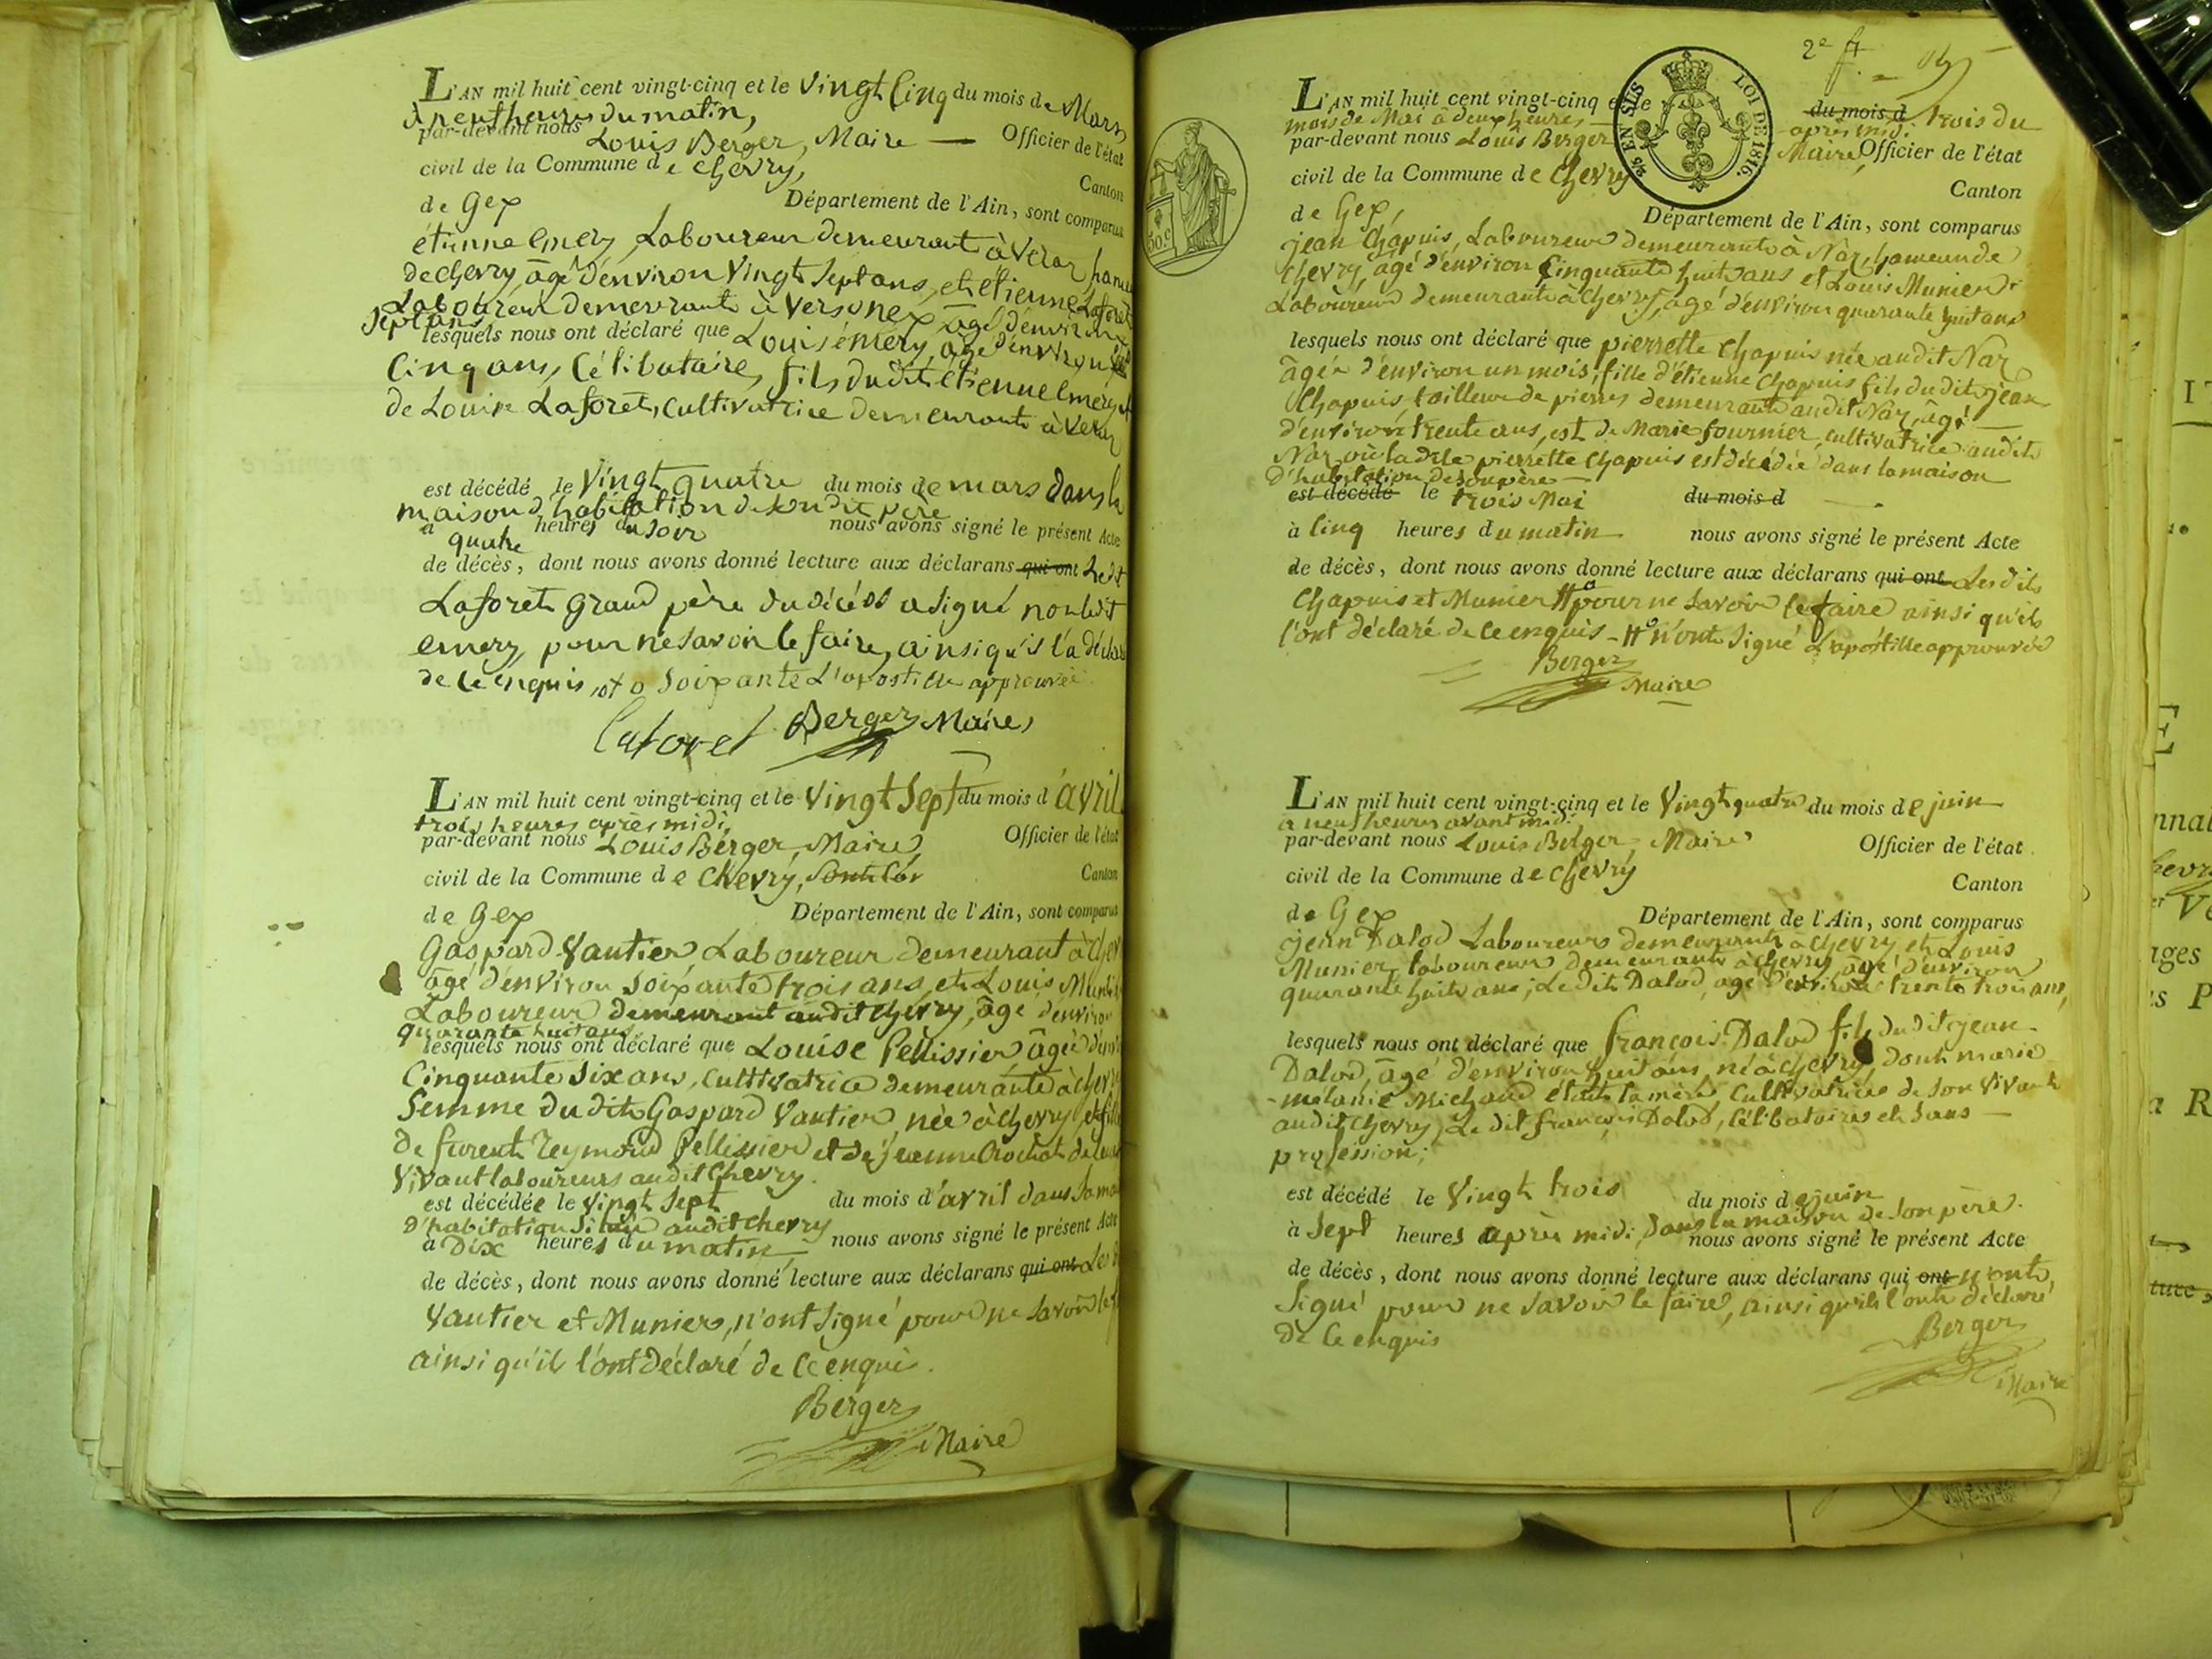 L'AN mil huit cent vingt-cinq et le vingt Cinq du mois de Mars
à neuf heures du matin,
par-devant nous Louis Berger, Maire — Officier de l'état
civil de la Commune de Chevry, Canton
de Gex Département de l'Ain, sont comparus
étienne Emery, Laboureur demeurant à Veraz hameau
de Chevry, âgé d'environ vingt sept ans, et etienne Laforet
Laboureur demeurant à Versonex âgé d'environ
sept ans
lesquels nous ont déclaré que Louis émery, âgé d'environ
Cinq ans, Célibataire, fils dudit etienne Emery et
de Louise Laforet, cultivatrice demeurante à Veraz
est décédé le vingt quatre du mois de mars dans la
maison d'habitation de son dit père
à quatre heures du soir nous avons signé le présent Acte
de décès, dont nous avons donné lecture aux déclarans qui ont Ledit
Laforet grand père du décédé a signé non ledit
emery, pour ne savoir le faire, ainsi qu'il l'a déclaré
de ce enquis, soixante L'apostille approuvée
Laforet Berger Maire
L'AN mil huit cent vingt-cinq et le vingt Sept du mois d'avril
trois heures après midi,
par-devant nous Louis Berger, Maire, Officier de l'état
civil de la Commune de Chevry, Canton
de Gex Département de l'Ain, sont comparus
Gaspard Vautier, Laboureur demeurant à Chev
âgé d'environ soixante trois ans, et Louis Munier
Laboureur demeurant audit Chevry, âgé d'environ
quarante huit ans
lesquels nous ont déclaré que Louise Pellissier âgée d'env
Cinquante six ans, Cultivatrice demeurante à Chevry
femme dudit Gaspard Vautier, née à Chevry et fille
de Reymond Pellissier et de Jeanne Crochat de leur
vivant laboureurs audit Chevry.
est décédée le vingt sept du mois d'avril dans sa mai
d'habitation située audit Chevry
à Dix heures du matin, nous avons signé le présent Acte
de décès, dont nous avons donné lecture aux déclarans qui ont Les
Vautier et Munier, n'ont signé pour ne savoir le f
ainsi qu'il l'ont déclaré de ce enqui.
Berger
Maire
2e f.
2/6 EN SUS LOI DE 1816.
50.c
L'AN mil huit cent vingt-cinq et le du mois d trois du
mois de Mai à deux heures après midi
par-devant nous Louis Berger Maire, Officier de l'état
civil de la Commune de Chevry Canton
de Gex, Département de l'Ain, sont comparus
jean Chapuis, Laboureur demeurant à Naz, hameau de
Chevry, âgé d'environ Cinquante huit ans et Louis Munier
Laboureur demeurant à Chevry, âgé d'environ quarante huit ans
lesquels nous ont déclaré que pierrette Chapuis née audit Naz
âgée d'environ un mois, fille d'étienne Chapuis fils dudit jean
Chapuis tailleur de pierres demeurant audit Naz, âgé
d'environ trente ans, est de Marie fournier, cultivatrice audit
Naz où ladite pierrette Chapuis est décédée dans la maison
d'habitation de son père
est décédé le trois Mai du mois d
à Cinq heures du matin nous avons signé le présent Acte
de décès, dont nous avons donné lecture aux déclarans qui ont Lesdits
Chapuis et Munier # pour ne savoir le faire ainsi qu'ils
l'ont déclaré de ce enquis - # n'ont signé L'apostille approuvée
Berger
Maire
L'AN mil huit cent vingt-cinq et le vingt quatre du mois de juin
à neuf heures avant midi
par-devant nous Louis Berger, Maire Officier de l'état
civil de la Commune de Chevry Canton
de Gex Département de l'Ain, sont comparus
jean Dalod Laboureur demeurant à Chevry et Louis
Munier, laboureur demeurant à Chevry, âgé d'environ
quarante huit ans, Ledit Dalod, âgé d'environ trente trois ans,
lesquels nous ont déclaré que françois Dalod fils dudit jean
Dalod, âgé d'environ huit ans, né à Chevry, dont marie
melanie Michaud était la mère Cultivatrice de son vivant
audit Chevry, Ledit françois Dalod, Célibataire et sans
profession;
est décédé le vingt trois du mois de juin
à sept heures après midi, dans la maison de son père.
nous avons signé le présent Acte
de décès, dont nous avons donné lecture aux déclarans qui ont n'ont
signé pour ne savoir le faire, ainsi qu'ils l'ont déclaré
de ce enquis
Berger
Maire